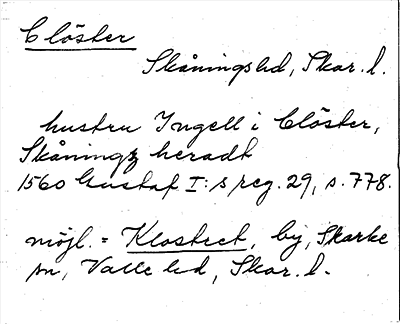 Clöster
Skåningshd, Skar. l.
hustru Ingell i Clöster,
Skåningz heradt
1560 Gustaf I:s reg. 29, s. 778.
möjl. = Klostret, by, Skarke
sn, Valle hd, Skar. l.